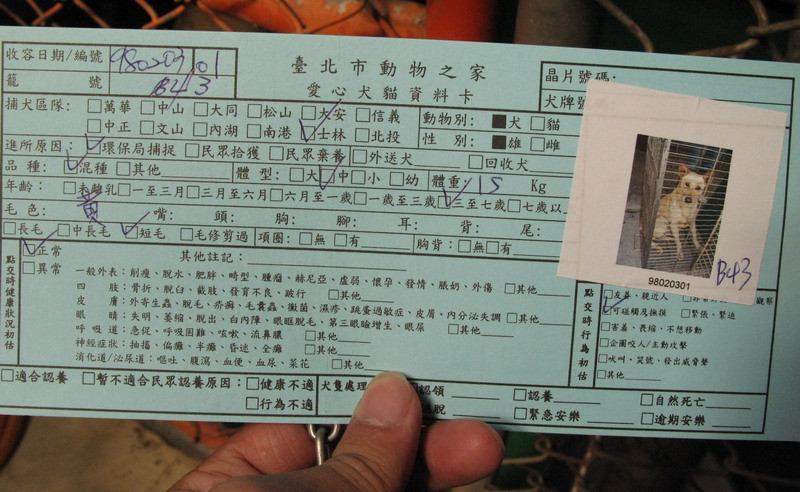 臺北市動物之家
愛心犬貓資料卡
收容日期/編號 980203 01
籠 號 B43
晶片號碼:
犬牌號
捕犬區隊: □萬華 □中山 □大同 □松山 □大安 □信義
□中正 □文山 □內湖 □南港 ☑士林 □北投
動物別: ■犬 □貓
性 別: ■雄 □雌
進所原因: ☑環保局捕捉 □民眾拾獲 □民眾棄養 □外送犬 □回收犬
品 種: ☑混種 □其他 體 型: □大 ☑中 □小 □幼 體重: 15 Kg
年齡: □未離乳 □一至三月 □三月至六月 □六月至一歲 □一歲至三歲 ☑三至七歲 □七歲以
毛 色: 黃 嘴: 頭: 胸: 腳: 耳: 背: 尾:
□長毛 □中長毛 ☑短毛 □毛修剪過 項圈: □無 □有 胸背: □無 □有
點交時健康狀況初估
☑正常
□異常
其他註記:
一般外表: 削瘦、脫水、肥胖、畸型、腫瘤、赫尼亞、虛弱、懷孕、發情、脹奶、外傷 □其他
四 肢: 骨折、脫臼、截肢、發育不良、跛行 □其他
皮 膚: 外寄生蟲、脫毛、疥癬、毛囊蟲、黴菌、濕疹、跳蚤過敏症、皮屑、內分泌失調 □其他
眼 睛: 失明、萎縮、脫出、白內障、眼眶脫毛、第三眼瞼增生、眼屎 □其他
呼 吸 道: 急促、呼吸困難、咳嗽、流鼻膿 □其他
神經症狀: 抽搐、偏癱、半癱、昏迷、全癱 □其他
消化道/泌尿道: 嘔吐、腹瀉、血便、血尿、菜花 □其他
點交時行為初估
□友善、親近人
觀察
☑可碰觸及撫摸 □緊張、緊迫
□害羞、畏縮、不想移動
□企圖咬人/主動攻擊
□吠叫、哭號、發出威脅聲
□其他
□適合認養 □暫不適合民眾認養原因: □健康不適
□行為不適
犬隻處理
認領 □認養 □自然死亡
逃脫 □緊急安樂 □逾期安樂
98020301
B43